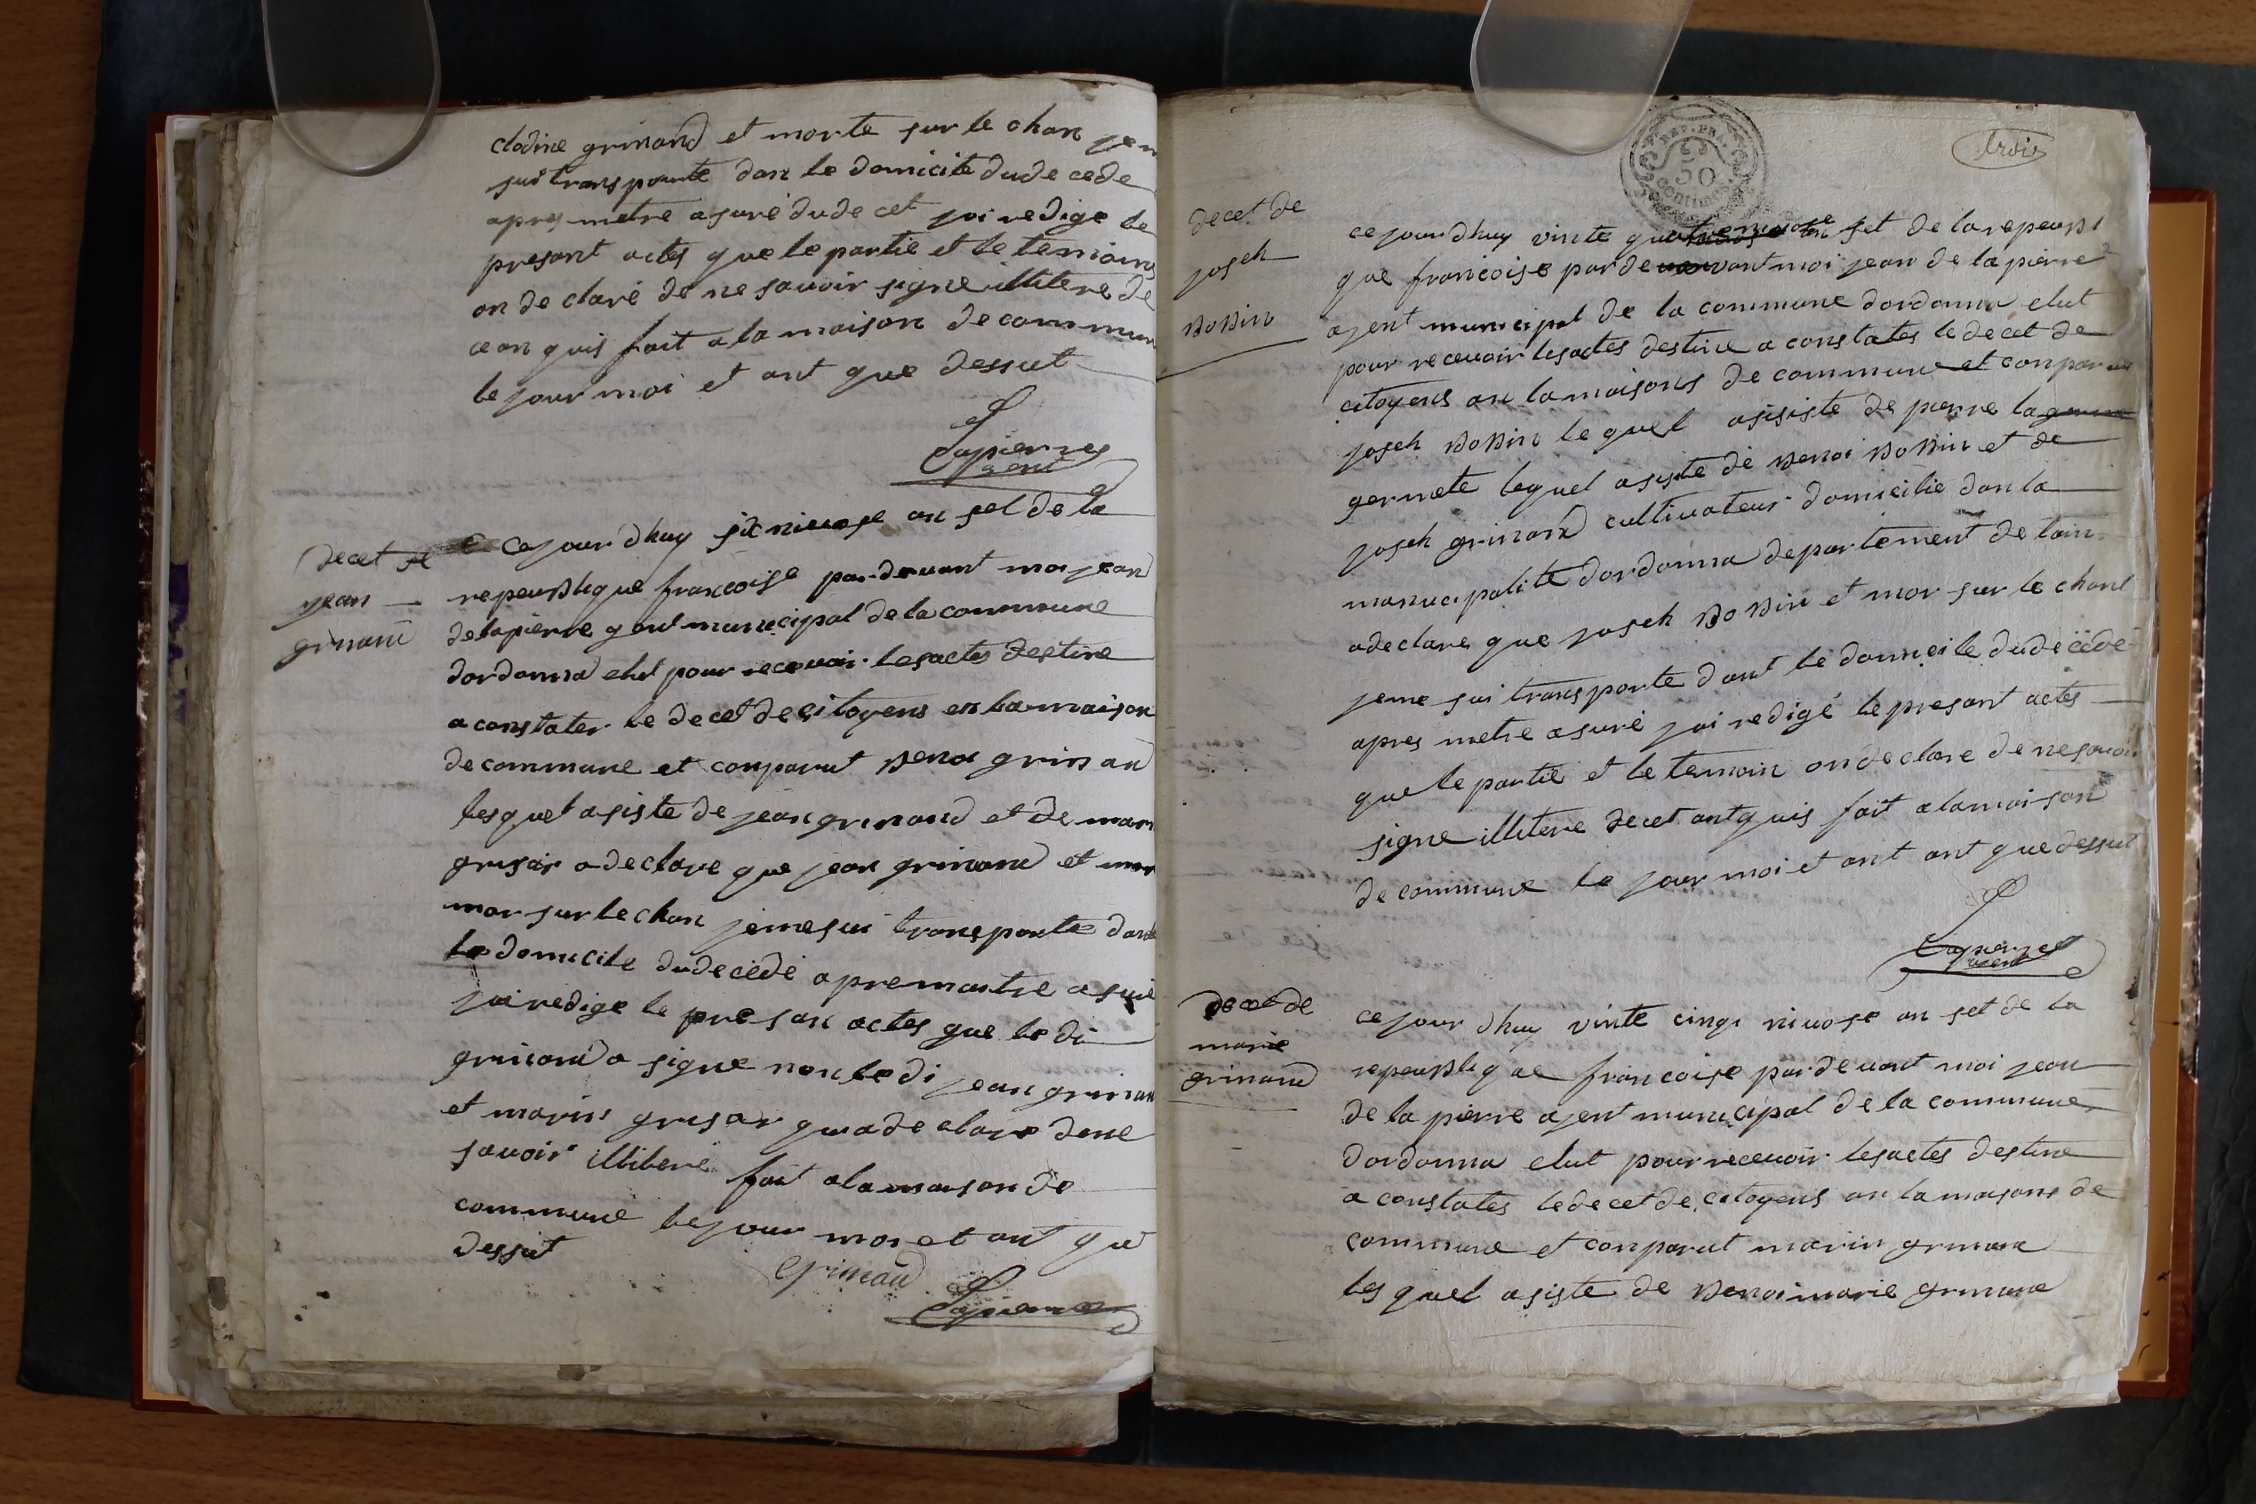 clodine grinand et morte sur le chan jem
sui transporte dan le domicile dude cede
apres metre asuré dude cet jai redige le
presant actes que le partie et le temoins
on de claré de ne savoir signe illitere de
ce an quis fait a la maison de commun
le jour moi et ant que dessut
Lapierre
agent
decet de
jean
grinand
ce jour dhuy six nivose an set de la
repeublique francoise pardevant moi jean
delapierre gent municipal de la commune
dordonna elut pour recevoir lesactes destine
a constater le decet de citoyens en la maison
de commune et conparut Benoi grinand
lesquel asiste de jean grinand et de marin
grusar a declare que jean grinand et mor
mor sur le chan jeme sui transporte dant
le domicile dudecede apre maitre asuré
jai redige le presan actes que le di
grinand a signe non le di jean grinan
et marin grusar qui a de clare dene
savoir illitere fait a la maison de
commune le jour moi et ant que
dessut
Grinand
Lapierre
trois
REP. FRA.
50
centimes
decet de
joseh
Bobin
ce jour dhuy vinte quatre nivose an set de la repeubli
que francoise par devant moi jean de la pierre
ajent municipal de la commune dordonna elut
pour recevoir lesactes destine a constates le decet de
citoyens an la maisons de commune et conparue
joseh Bobin le quel asisiste de pierre la
germete lequel asiste de Benoi Bobin et de
joseh grinand cultivateur domicilie dan la
manucipalite dordonna departement de lain
a declare que joseh Bobin et mor sur le chant
jeme sui transporte dant le domicile dude cede
apres metre asuré jai redigé le presant actes
que le partie et le temoin on declare de ne savoir
signe illitere decet antquis fait a la maison
de commune le jour moi et ant ant que dessut
Lapierre
agent
decet de
marie
grinand
ce jour dhuy vinte cinq nivose an set de la
repeublique francoise pardevant moi jean
de la pierre ajent municipal de la commune
dordonna elut pour recevoir lesactes destine
a constates ledecet de citoyens an la maisons de
commune et conparut marin grinand
lesquel asiste de Benoi marie grinand